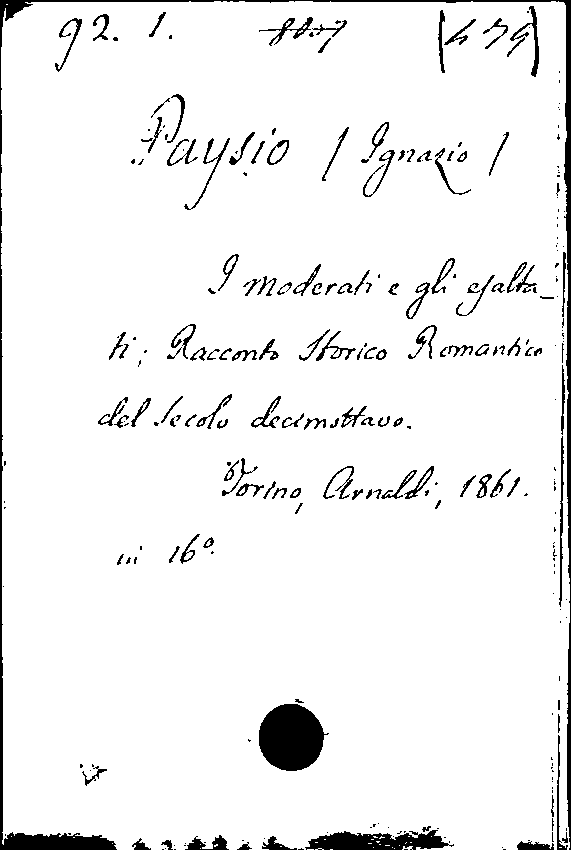 92. 1. (479)
Paysio / Ignazio /
I moderati e gli esalta_
ti; Racconto Storico Romantico
del Secolo decimottavo.
Torino, Arnaldi, 1861.
in 16º.